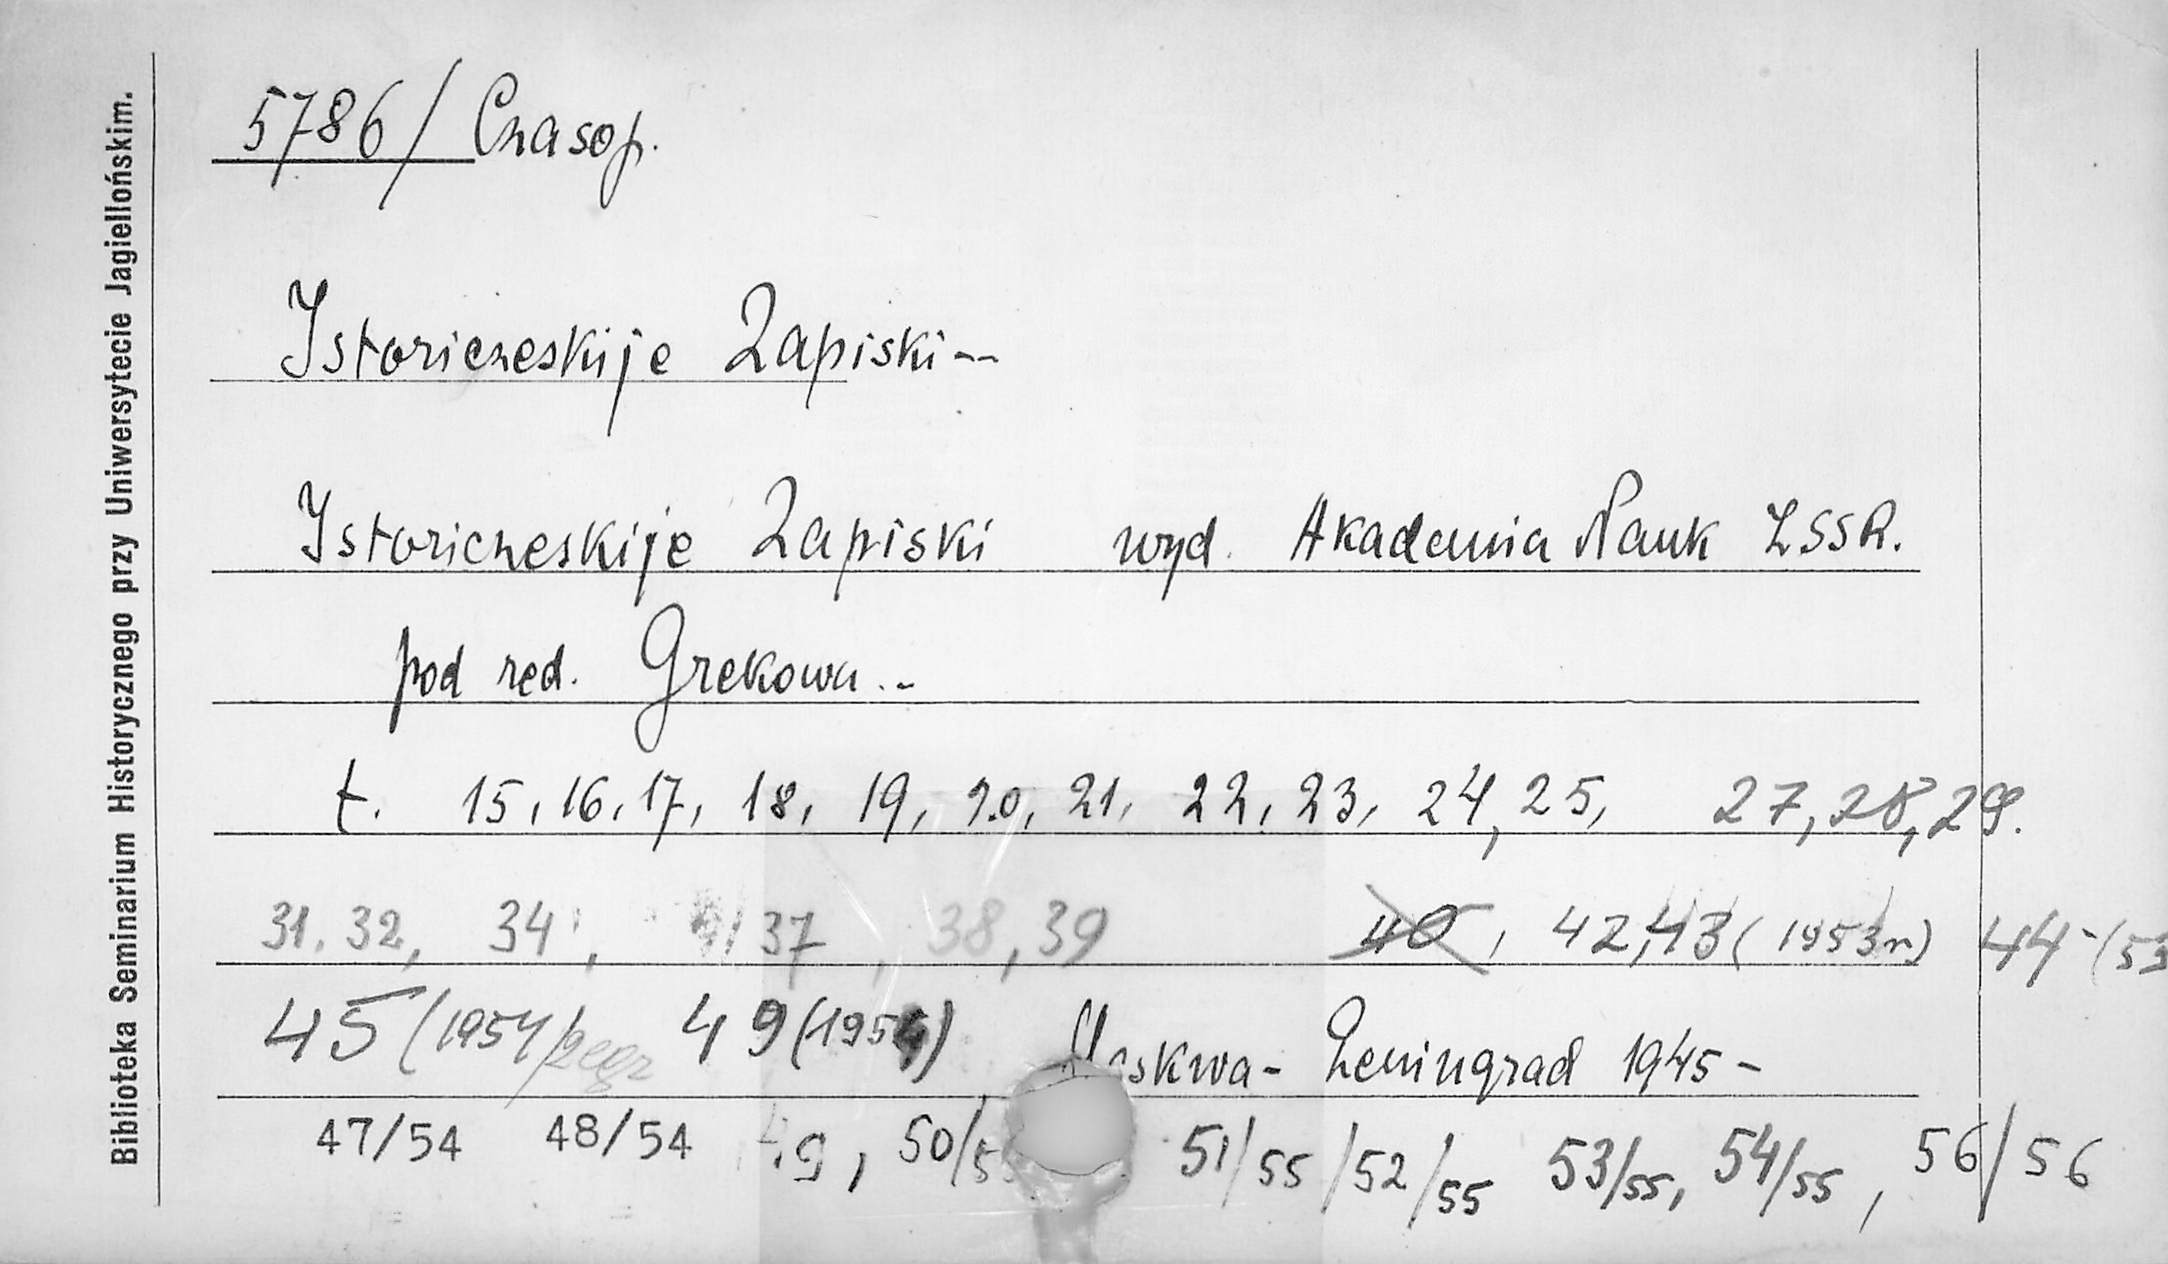 Biblioteka Seminarium Historycznego przy Uniwersytecie Jagiellońskim.
5786/Czasop.
Istoriczeskije Zapiski --
Istoriczeskije Zapiski wyd. Akademia Nauk ZSSR.
pod red. Grekowa . -
t. 15, 16, 17, 18, 19, 20, 21, 22, 23, 24, 25, 27, 28, 29.
31. 32, 34, 37, 38, 39 40, 42, 43 (1953r) 44 - (53
45 (1954) 49 (1954) Moskwa - Leningrad 1945 -
47/54 48/54 49, 50/55 51/55 / 52/55 53/55, 54/55, 56/56